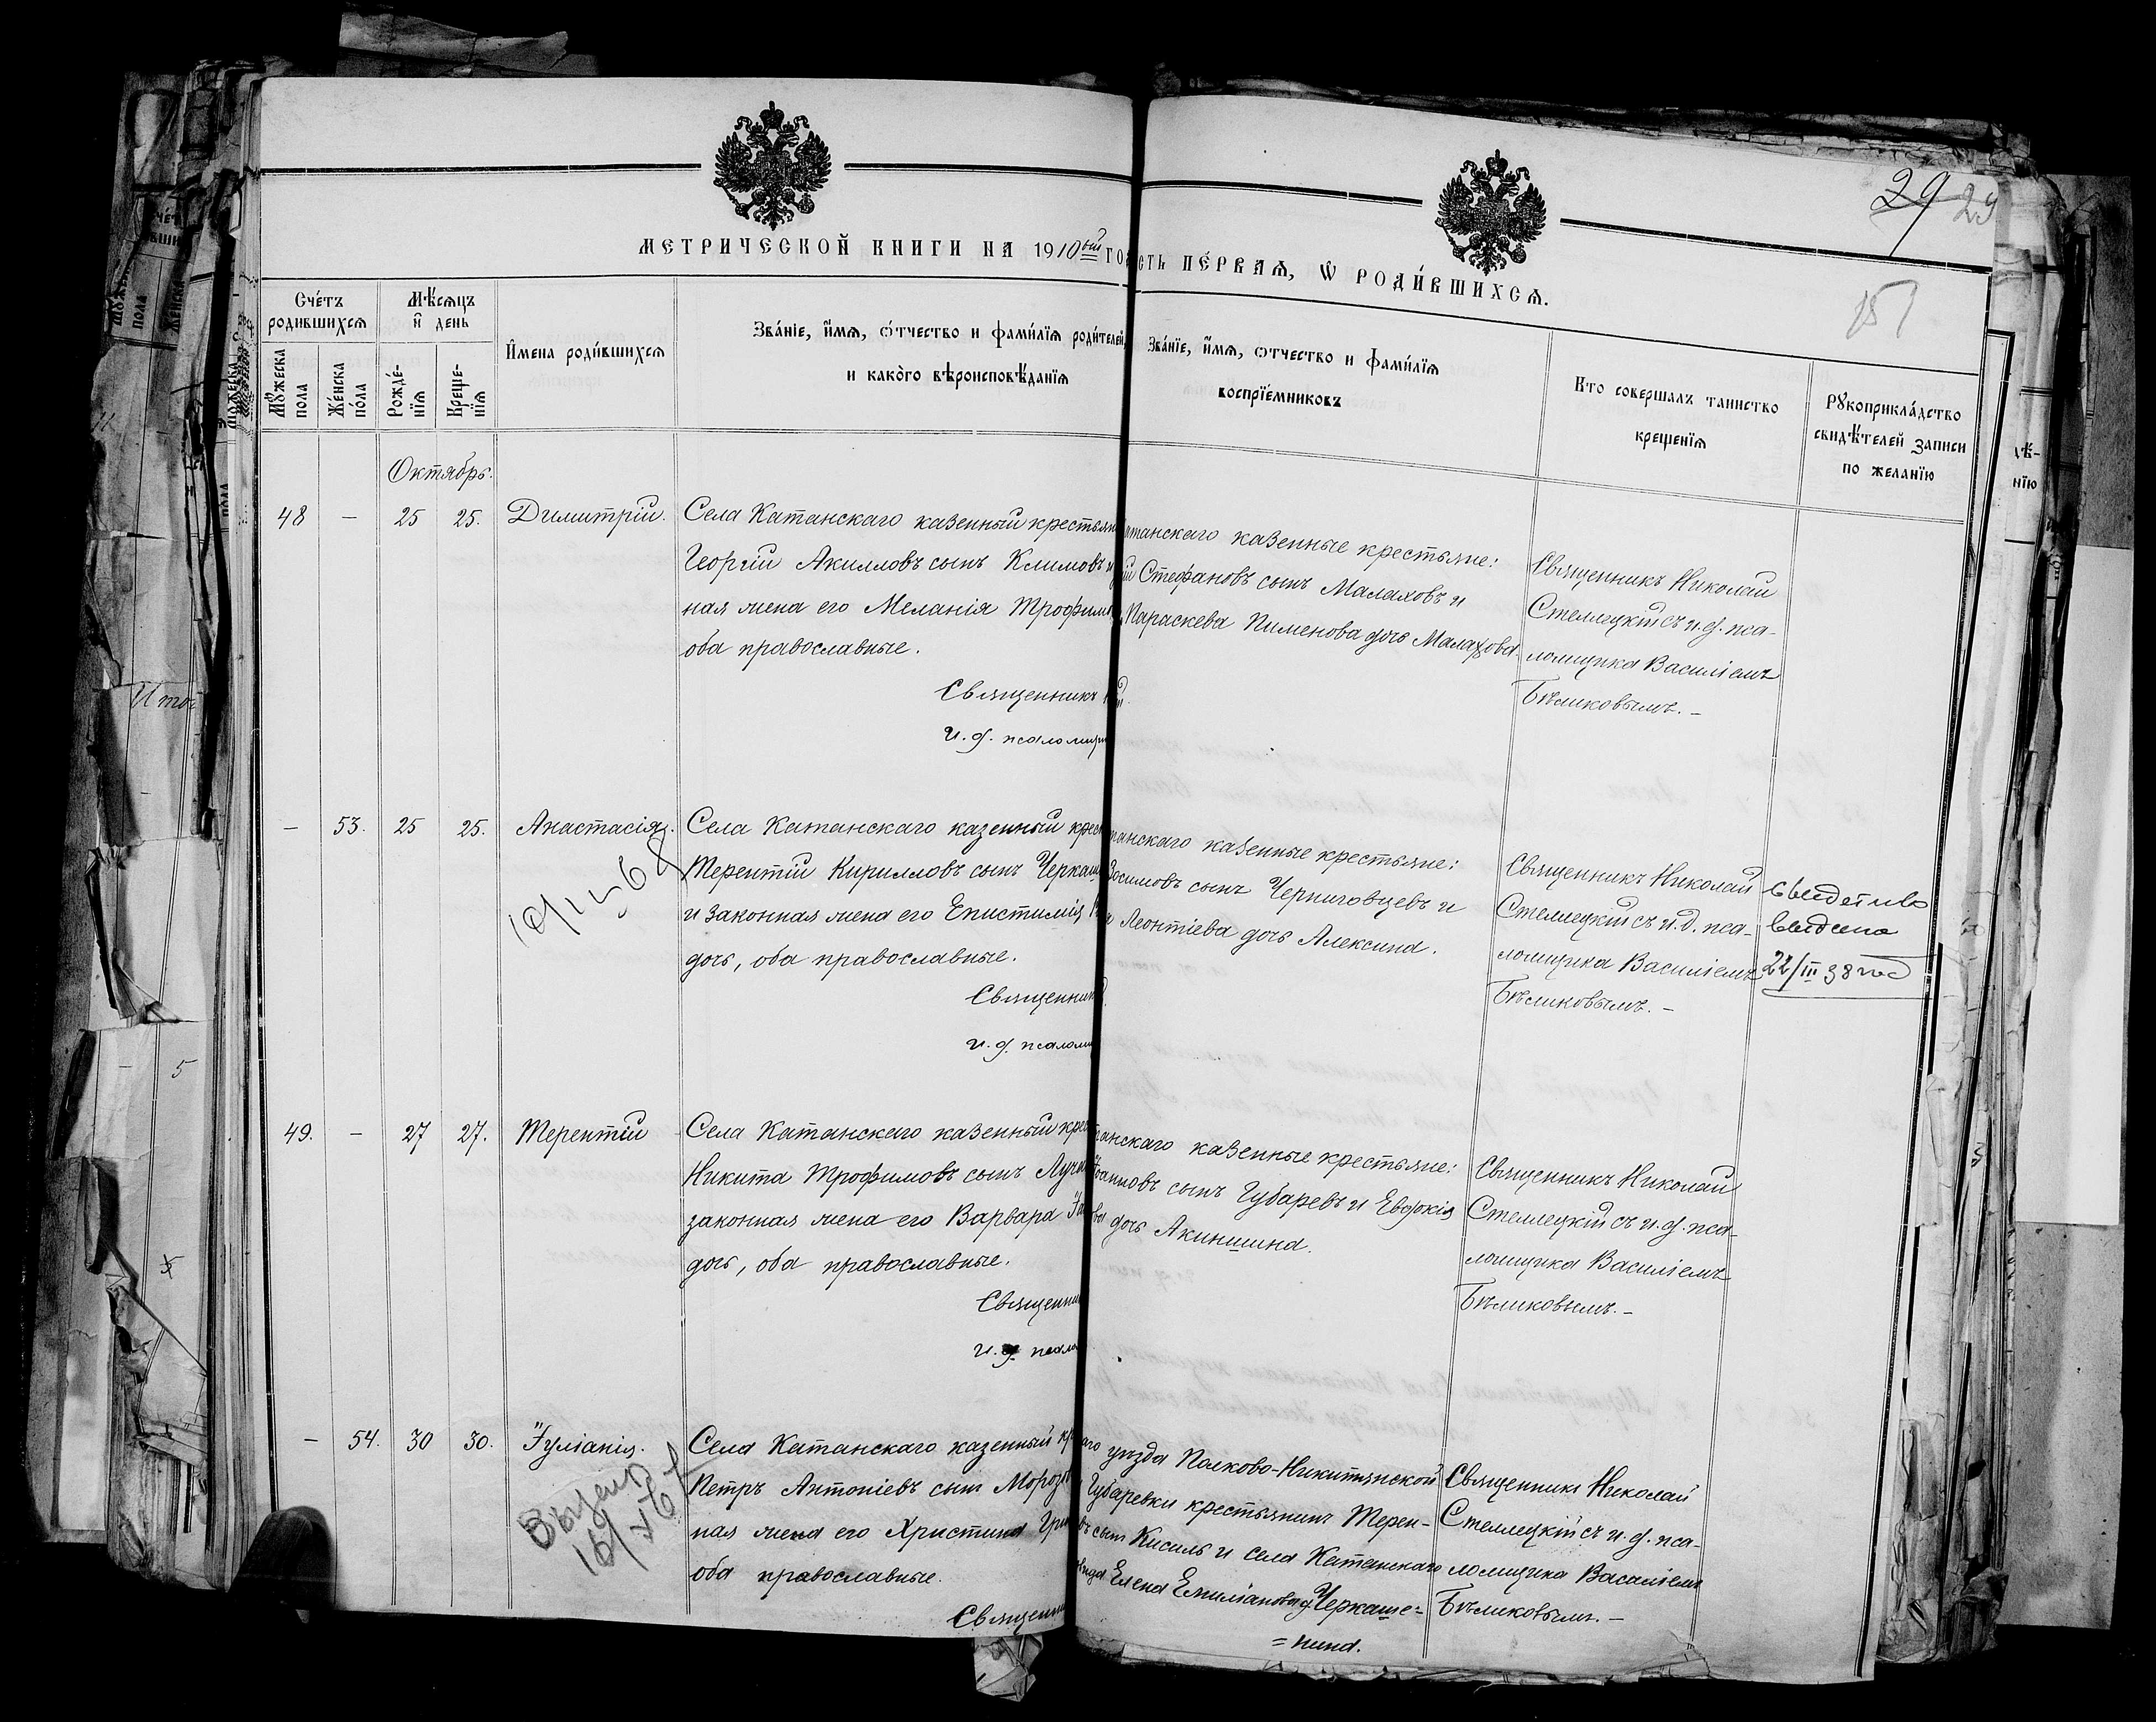 29 29
МЕТРИЧЕСКОЙ КНИГИ НА 1910ый ГО
СТЬ ПЕ́РВАѦ, Ѡ РОДИ́ВШИХСѦ.
151
Сче́тъ родившихсѧ
Мꙋжеска пола
Же́нска по́ла
Мѣ́сѧцъ и҆ день
Рожде́-нїѧ
Креще-нїѧ
И҆мена роди́вшихсѧ
Зва́нїе, и҆́мѧ, ѻ҆́тчество и фами́лїѧ роди́телей,
и како́го вѣроисповѣ́данїѧ
Зва́нїе, и҆́мѧ, ѻтчество и фами́лїѧ
воспрїе́мниковъ
Кто совершалъ таинство
крещенїѧ
Рꙋкоприкла́дство
свидѣ́телей записи
по желанїю
Октябрь.
48 – 25 25. Димитрій.
Села Катанскаго казенный крестьян
Георгій Акилловъ сынъ Климовъ и
ная жена его Меланія Трофим
оба православные.
Священникъ
и. д. псаломщи
танскаго казенные крестьяне:
Стефановъ сынъ Малаховъ и
Параскева Пименова дочь Малахова.
Священникъ Николай
Стеллецкій съ и. д. пса-
ломщика Василіемъ
Бѣликовымъ. –
– 53. 25 25. Анастасія.
Села Катанскаго казенный крест
Терентій Кирилловъ сынъ Черкаш
и законная жена его Епистимія
дочь, оба православные.
Священник
и. д. псаломщ
танскаго казенные крестьяне:
Зосимовъ сынъ Черниговцевъ и
Леонтіева дочь Алексина.
Священникъ Николай
Стеллецкій съ и. д. пса-
ломщика Василіемъ
Бѣликовымъ. –
выдано
22/III 38 год
49. – 27 27. Терентій
Села Катанскаго казенный крест
Никита Трофимовъ сынъ
законная жена его Варвара
дочь, оба православные.
Священни
и. д. псалом
танскаго казенные крестьяне:
сынъ Губаревъ и Евдокія
дочь Акиншина.
Священникъ Николай
Стеллецкій съ и. д. пса-
ломщика Василіемъ
Бѣликовымъ. –
– 54. 30 30. Іуліанія.
Села Катанскаго казенный кр
Петръ Антоніевъ сынъ Морозо
ная жена его Христина Гри
оба православные.
Священни
аго уѣзда Полково-Никитянской
Губаревки крестьянинъ Терен-
въ сынъ Кисиль и села Катанскаго
Елена Емиліанова д. Черкаше=
=нина.
Священникъ Николай
Стеллецкій съ и. д. пса-
ломщика Василіемъ
Бѣликовымъ. –